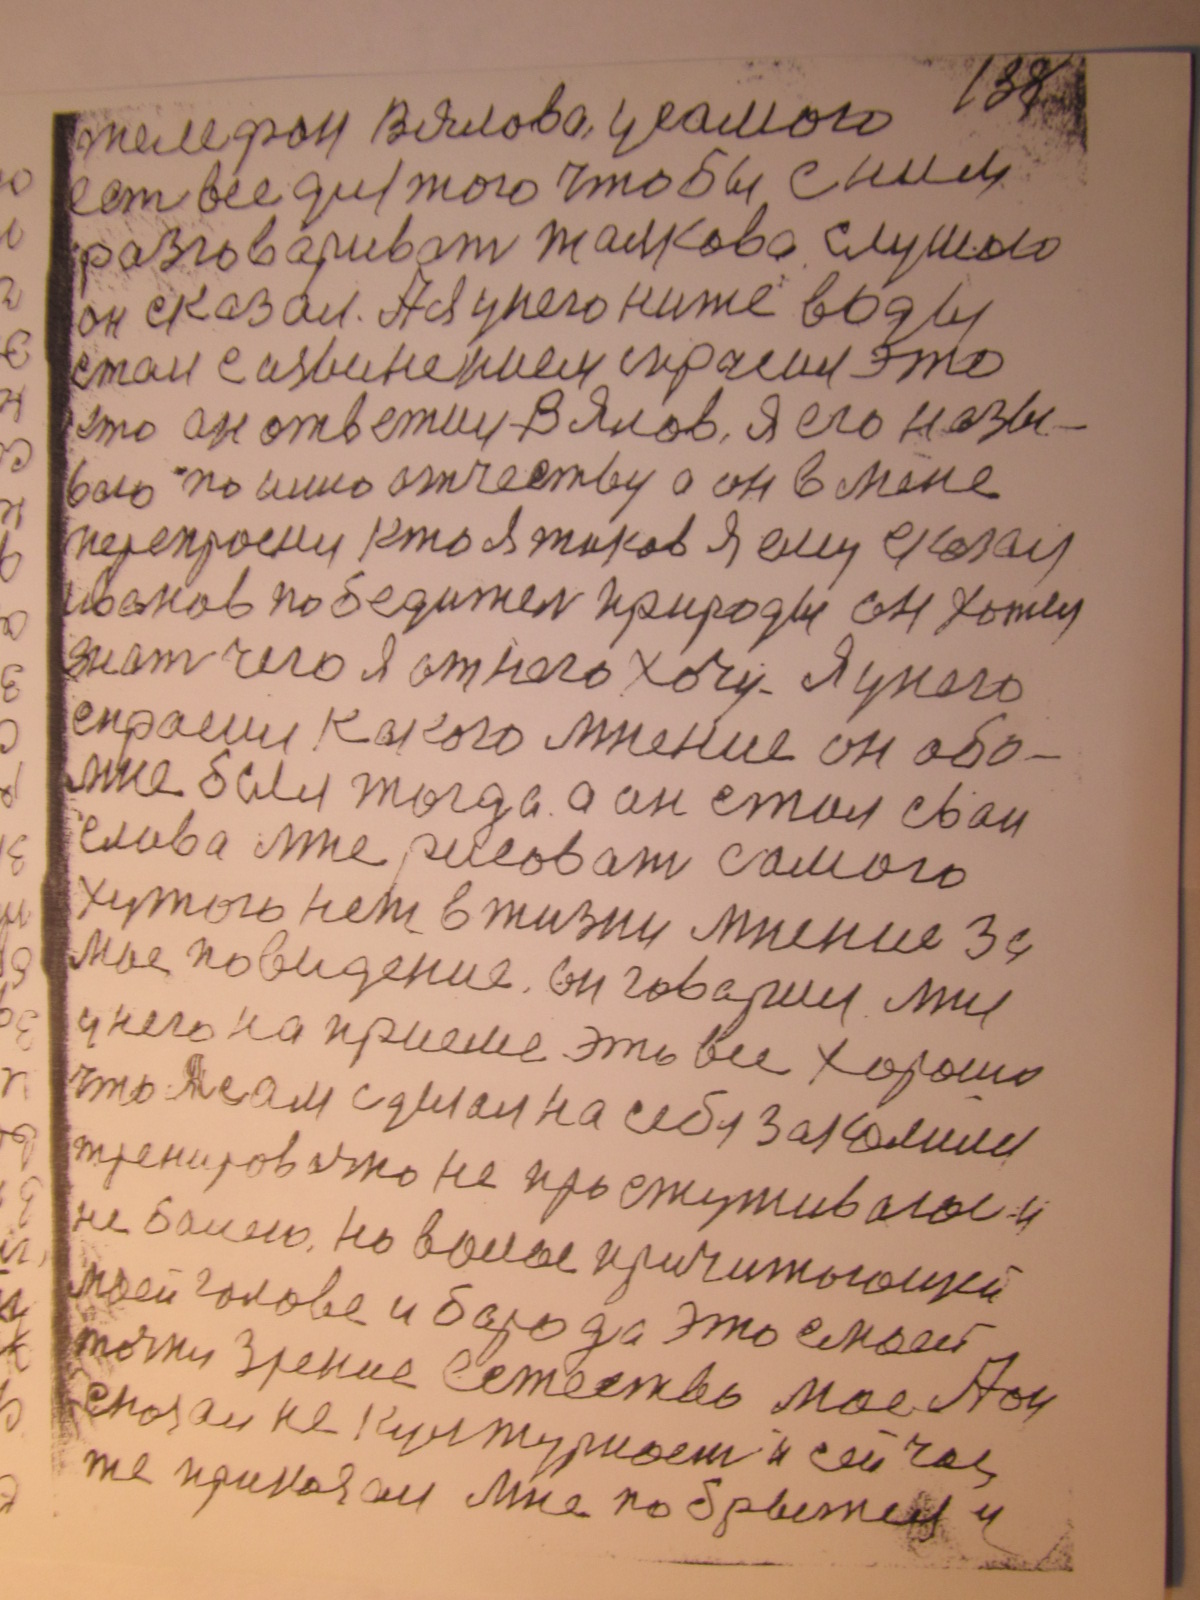 138
телефон Вялова, у самого
ест все для того чтобы с ним
разговариват толково. Слушаю
он сказал. А я у него ниже воды
стал с извинением спросил это
кто он ответил Вялов, я его назы-
ваю по имю отчеству а он в мене
перепросил кто я таков я ему сказал
иванов победител природы он хотел
знат чего я от него хочу. Я у него
спросил какого мнение он обо-
мне был тогда. а он стал свои
слова мне рисоват самого
хутого нет в жизни мнение за
мое повидение. он говорил мне
у него на приеме это все хорошо
что я сам сделал на себя закалил
тренировачно не простуживаюс и
не болею. но волос причитающей
моей голове и борода это с моей
точки зрение естество мое. А он
сказал не културност и сейчас
же приказал мне по